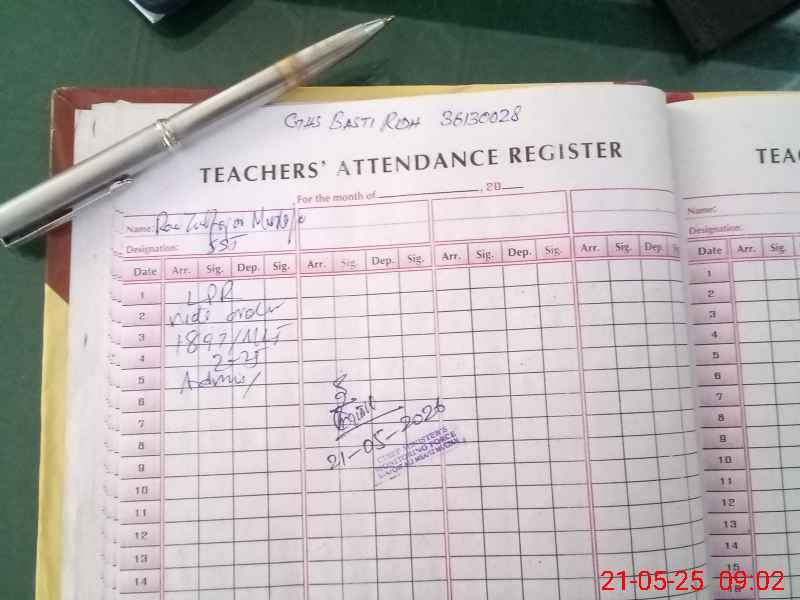 GHS BASTI RIDH 36130028
TEACHERS' ATTENDANCE REGISTER
For the month of , 20
Name: Rao
Designation: SST
Date Arr. Sig. Dep. Sig. Arr. Sig. Dep. Sig. Arr. Sig. Dep. Sig. Arr. Sig. Dep. Sig.
1 LPR
2 vide order
3
4
5 Admn/
6
7
8
9
10
11
12
13
14
21-05-2025
CHIEF MINISTER'S
MONITORING FORCE
TEAC
Name:
Designation:
Date Arr. Sig.
1
2
3
4
5
6
7
8
9
10
11
12
13
14
15
21-05-25 09:02